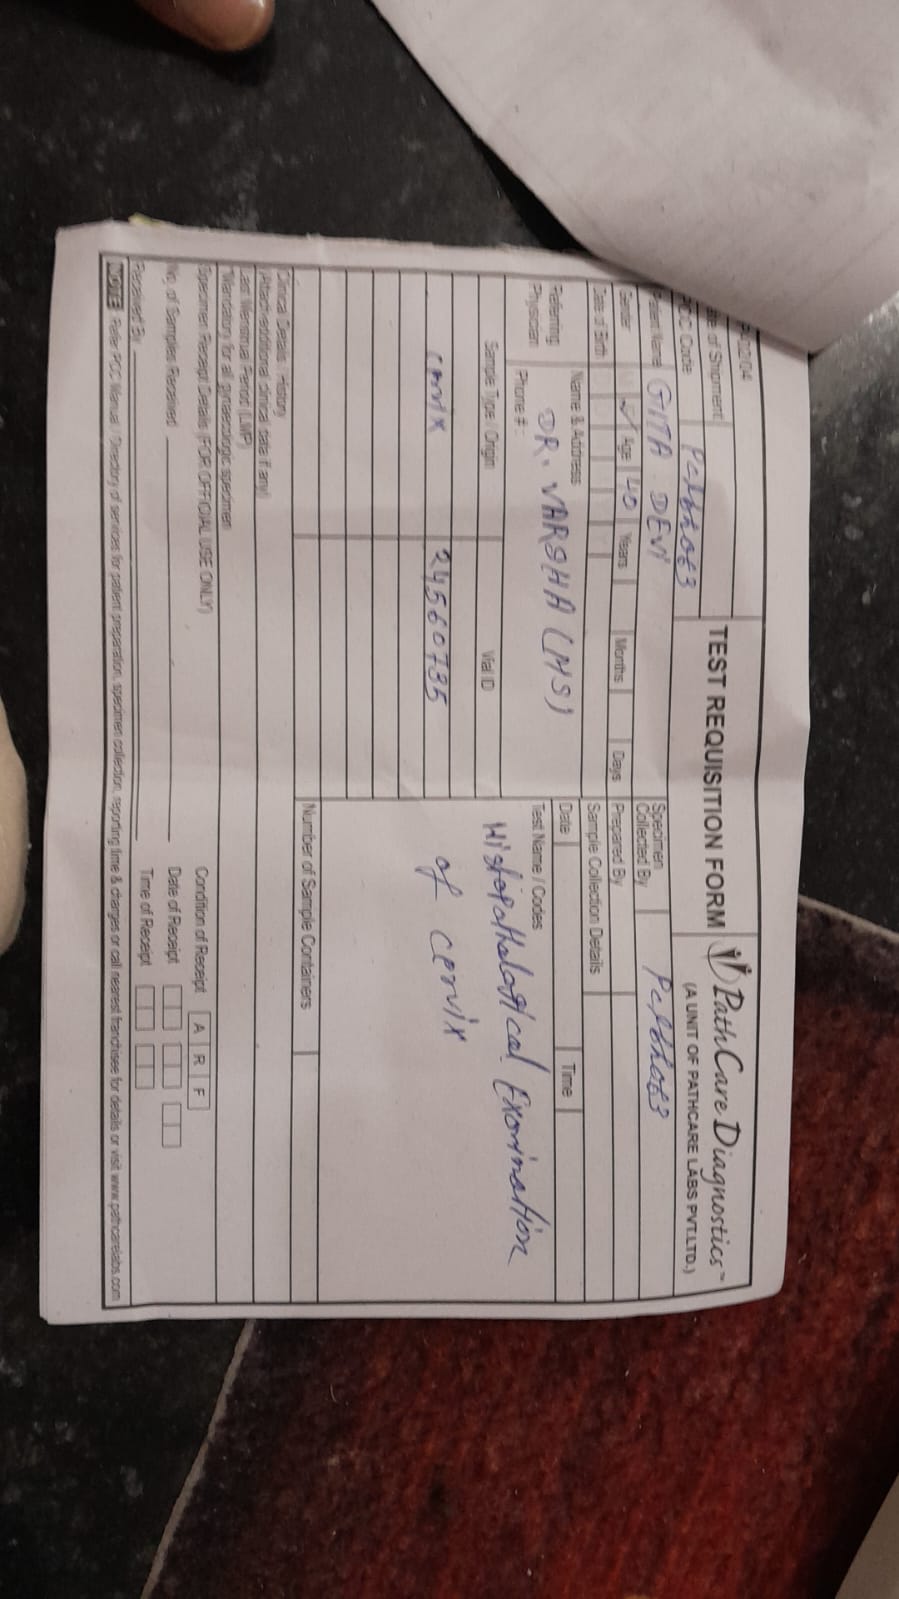 TEST REQUISITION FORM
PathCare Diagnostics™
(A UNIT OF PATHCARE LABS PVT.LTD.)
of Shipment
Code
GITA DEVI
Specimen Collected By
Gender
Age 40 Years Months Days
Prepared By
Date of Birth
Sample Collection Details
Referring Physician
Name & Address
DR. VARSHA (MS)
Date
Time
Phone #:
Test Name / Codes
Sample Type / Origin
Vial ID
Histopathological Examination
cervix
24560735
of cervix
Number of Sample Containers
Clinical Details / History
(Attach additional clinical data if any)
Last Menstrual Period (LMP)
*Mandatory for all gynaecologic specimen
Specimen Receipt Details (FOR OFFICIAL USE ONLY)
Condition of Receipt A R F
No. of Samples Received
Date of Receipt
Received By
Time of Receipt
NOTE Refer PCC Manual / Directory of services for patient preparation, specimen collection, reporting time & charges or call nearest franchisee for details or visit www.pathcarelabs.com